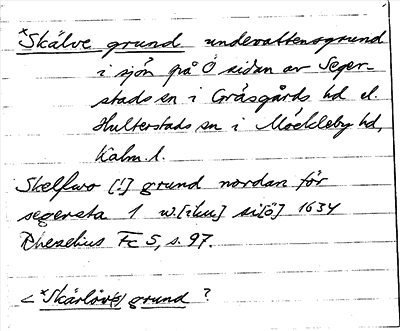 *Skälve grund undervattensgrund
i sjön på Ö sidan av Seger-
stads sn i Gräsgårds hd el.
Hulterstads sn i Möckleby hd,
Kalm. l.
Skelfwo [!] grund nordan för
segersta 1 w.[iku] si[ö] 1634
Rhezelius Fc 5, s. 97.
< *Skärlöv(s) grund ?